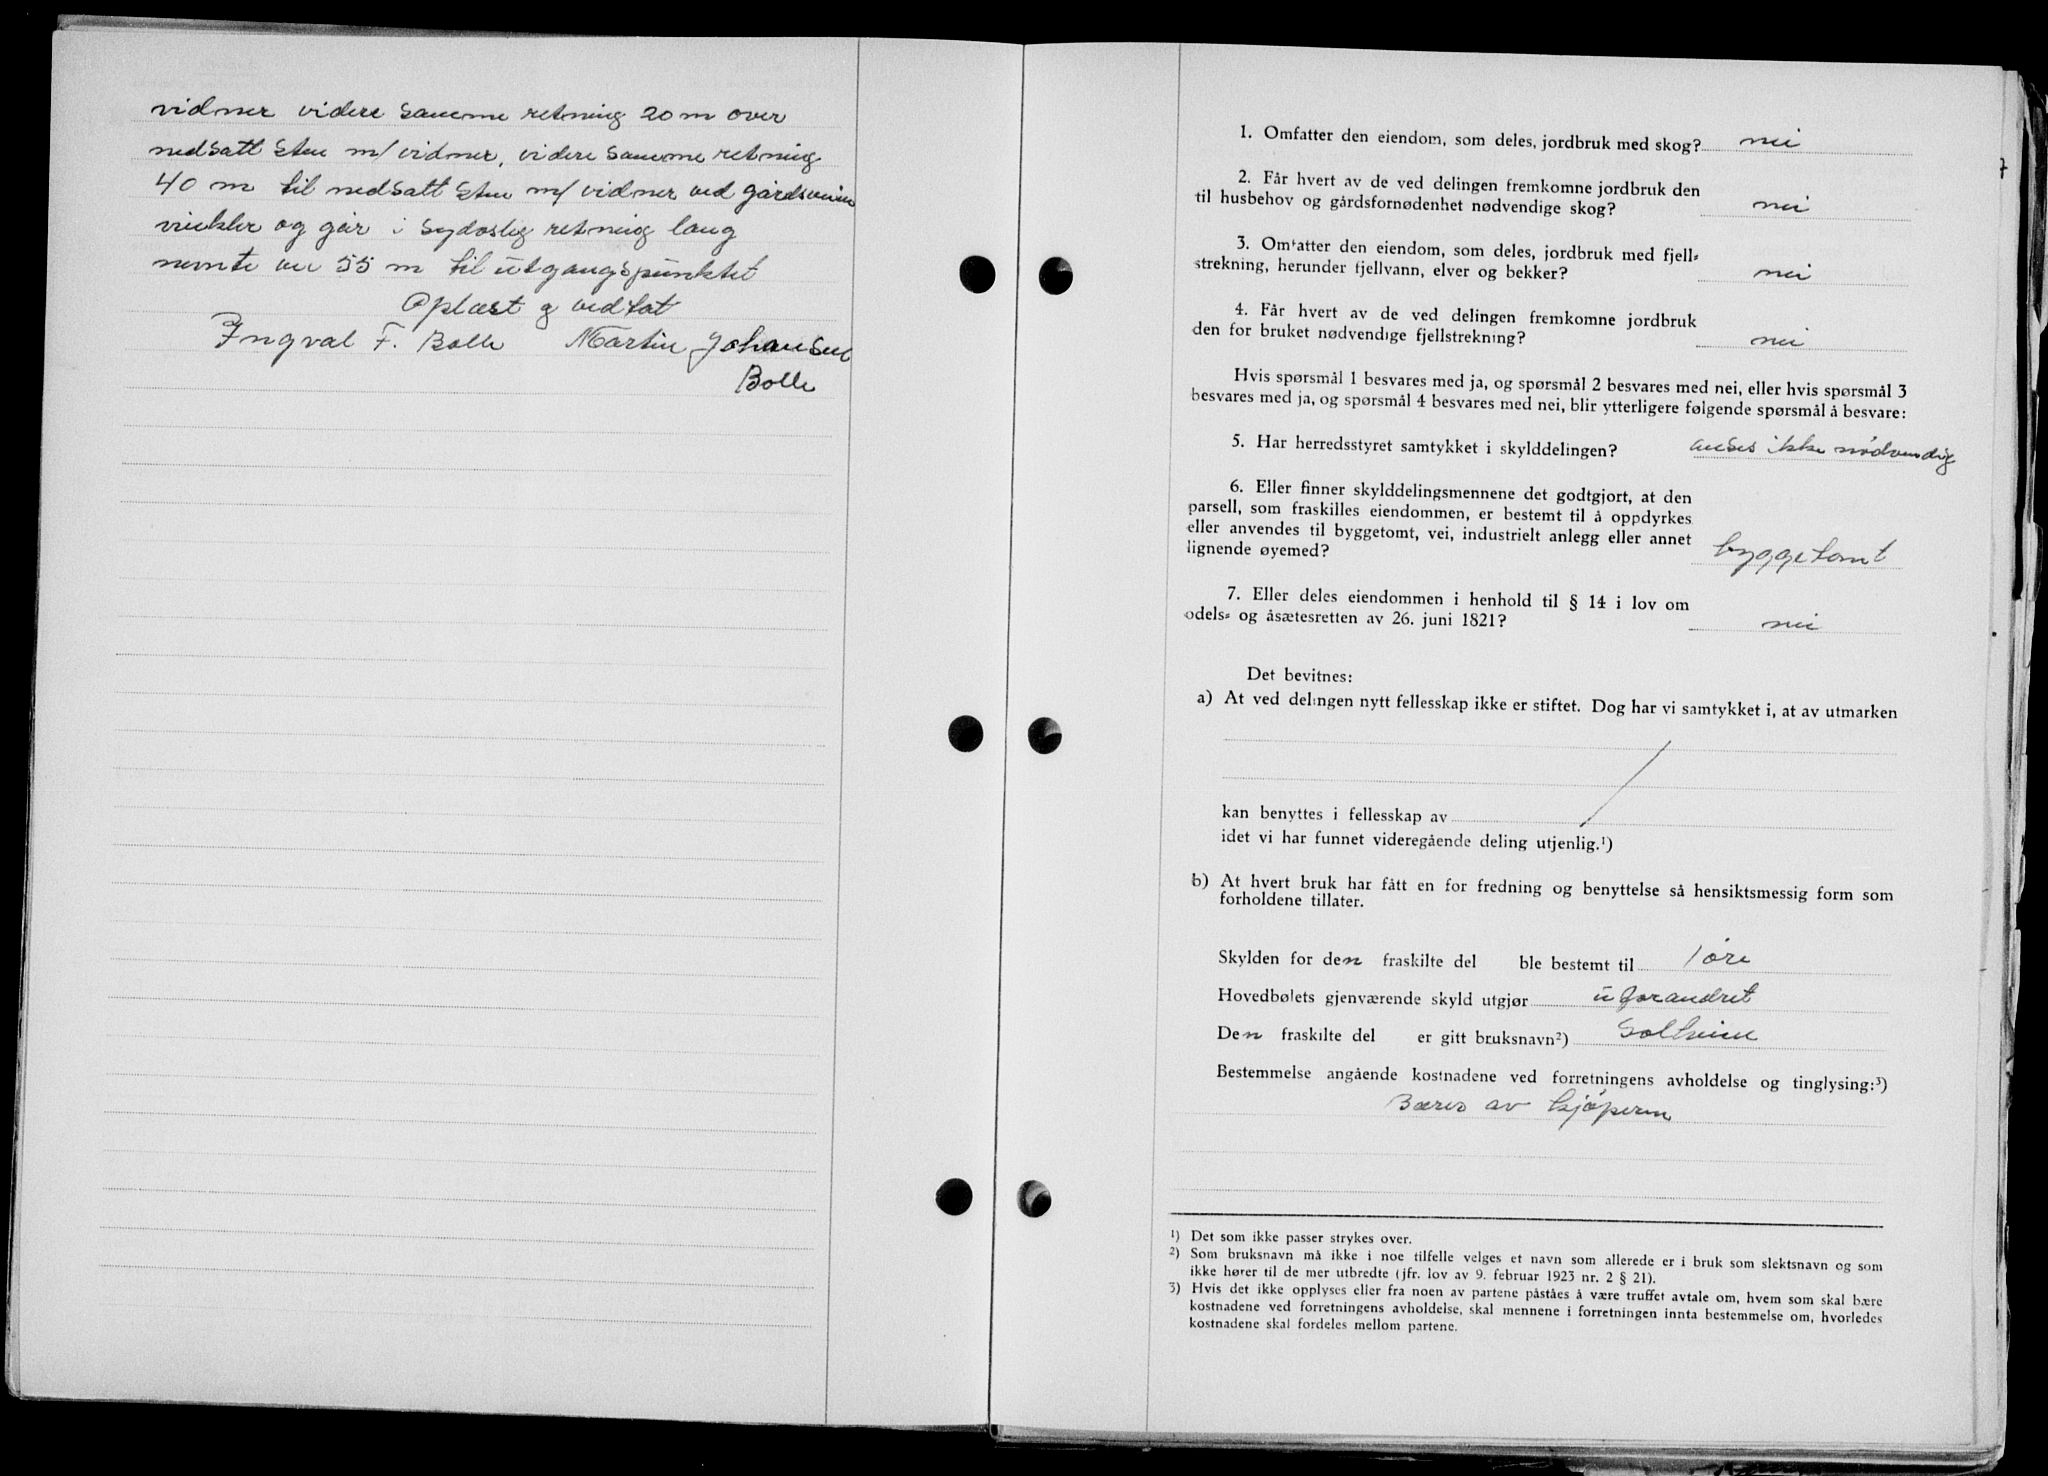 vidner videre samme retning 20 m over
nedsatt Sten m/vidner, videre samme retning
40 m til nedsatt Sten m/vidner ved gårdsveien
vinkler og går i sydøslig retning lang
nevnte vei 55 m til utgangspunktet
Oplæst g vedtat
Ingval F. Bolle Martin Johansen
Bolle
1. Omfatter den eiendom, som deles, jordbruk med skog? nei
2. Får hvert av de ved delingen fremkomne jordbruk den
til husbehov og gårdsfornødenhet nødvendige skog? nei
3. Omfatter den eiendom, som deles, jordbruk med fjell-
strekning, herunder fjellvann, elver og bekker? nei
4. Får hvert av de ved delingen fremkomne jordbruk
den for bruket nødvendige fjellstrekning? nei
Hvis spørsmål 1 besvares med ja, og spørsmål 2 besvares med nei, eller hvis spørsmål 3
besvares med ja, og spørsmål 4 besvares med nei, blir ytterligere følgende spørsmål å besvare:
5. Har herredsstyret samtykket i skylddelingen? anses ikke nødvendig
6. Eller finner skylddelingsmennene det godtgjort, at den
parsell, som fraskilles eiendommen, er bestemt til å oppdyrkes
eller anvendes til byggetomt, vei, industrielt anlegg eller annet
lignende øyemed? byggetomt
7. Eller deles eiendommen i henhold til § 14 i lov om
odels- og åsætesretten av 26. juni 1821? nei
Det bevitnes:
a) At ved delingen nytt fellesskap ikke er stiftet. Dog har vi samtykket i, at av utmarken
kan benyttes i fellesskap av
idet vi har funnet videregående deling utjenlig.¹)
b) At hvert bruk har fått en for fredning og benyttelse så hensiktsmessig form som
forholdene tillater.
Skylden for den fraskilte del ble bestemt til 1 øre
Hovedbølets gjenværende skyld utgjør uforandret
Den fraskilte del er gitt bruksnavn²) Solheim
Bestemmelse angående kostnadene ved forretningens avholdelse og tinglysing:³)
Bæres av kjøperen
¹) Det som ikke passer strykes over.
²) Som bruksnavn må ikke i noe tilfelle velges et navn som allerede er i bruk som slektsnavn og som
ikke hører til de mer utbredte (jfr. lov av 9. februar 1923 nr. 2 § 21).
³) Hvis det ikke opplyses eller fra noen av partene påståes å være truffet avtale om, hvem som skal bære
kostnadene ved forretningens avholdelse, skal mennene i forretningen innta bestemmelse om, hvorledes
kostnadene skal fordeles mellom partene.